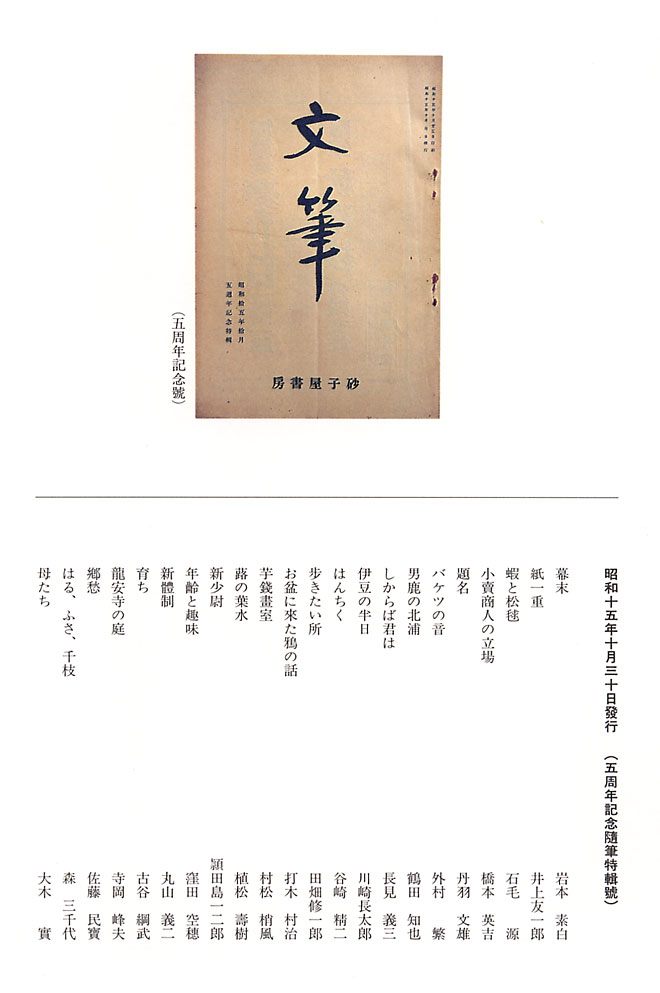 文筆
昭和拾五年拾月
五週年記念特輯
砂子屋書房
（五周年記念號）
昭和十五年十月三十日發行　（五周年記念隨筆特輯號）
幕末　岩本　素白
紙一重　井上友一郎
蝦と松毬　石毛　源
小賣商人の立場　橋本　英吉
題名　丹羽　文雄
バケツの音　外村　繁
男鹿の北浦　鶴田　知也
しからば君は　長見　義三
伊豆の半日　川崎長太郎
はんちく　谷崎　精二
歩きたい所　田畑修一郎
お盆に來た鴉の話　打木　村治
芋錢畫室　村松　梢風
蕗の葉水　植松　壽樹
新少尉　頴田島一二郎
年齡と趣味　窪田　空穗
新體制　丸山　義二
育ち　古谷　綱武
龍安寺の庭　寺岡　峰夫
鄕愁　佐藤　民寶
はる、ふさ、千枝　森　三千代
母たち　大木　實